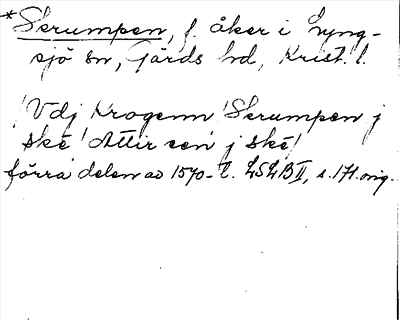 *Skrumpen, f. åker i Lyng-
sjö sn, Gärds hd, Krist. l.
/Vdj Krogenn/Skrumpen j
ske/Attir een j ske/
förra delen av 1570-t. LSLB II, s. 171. orig.